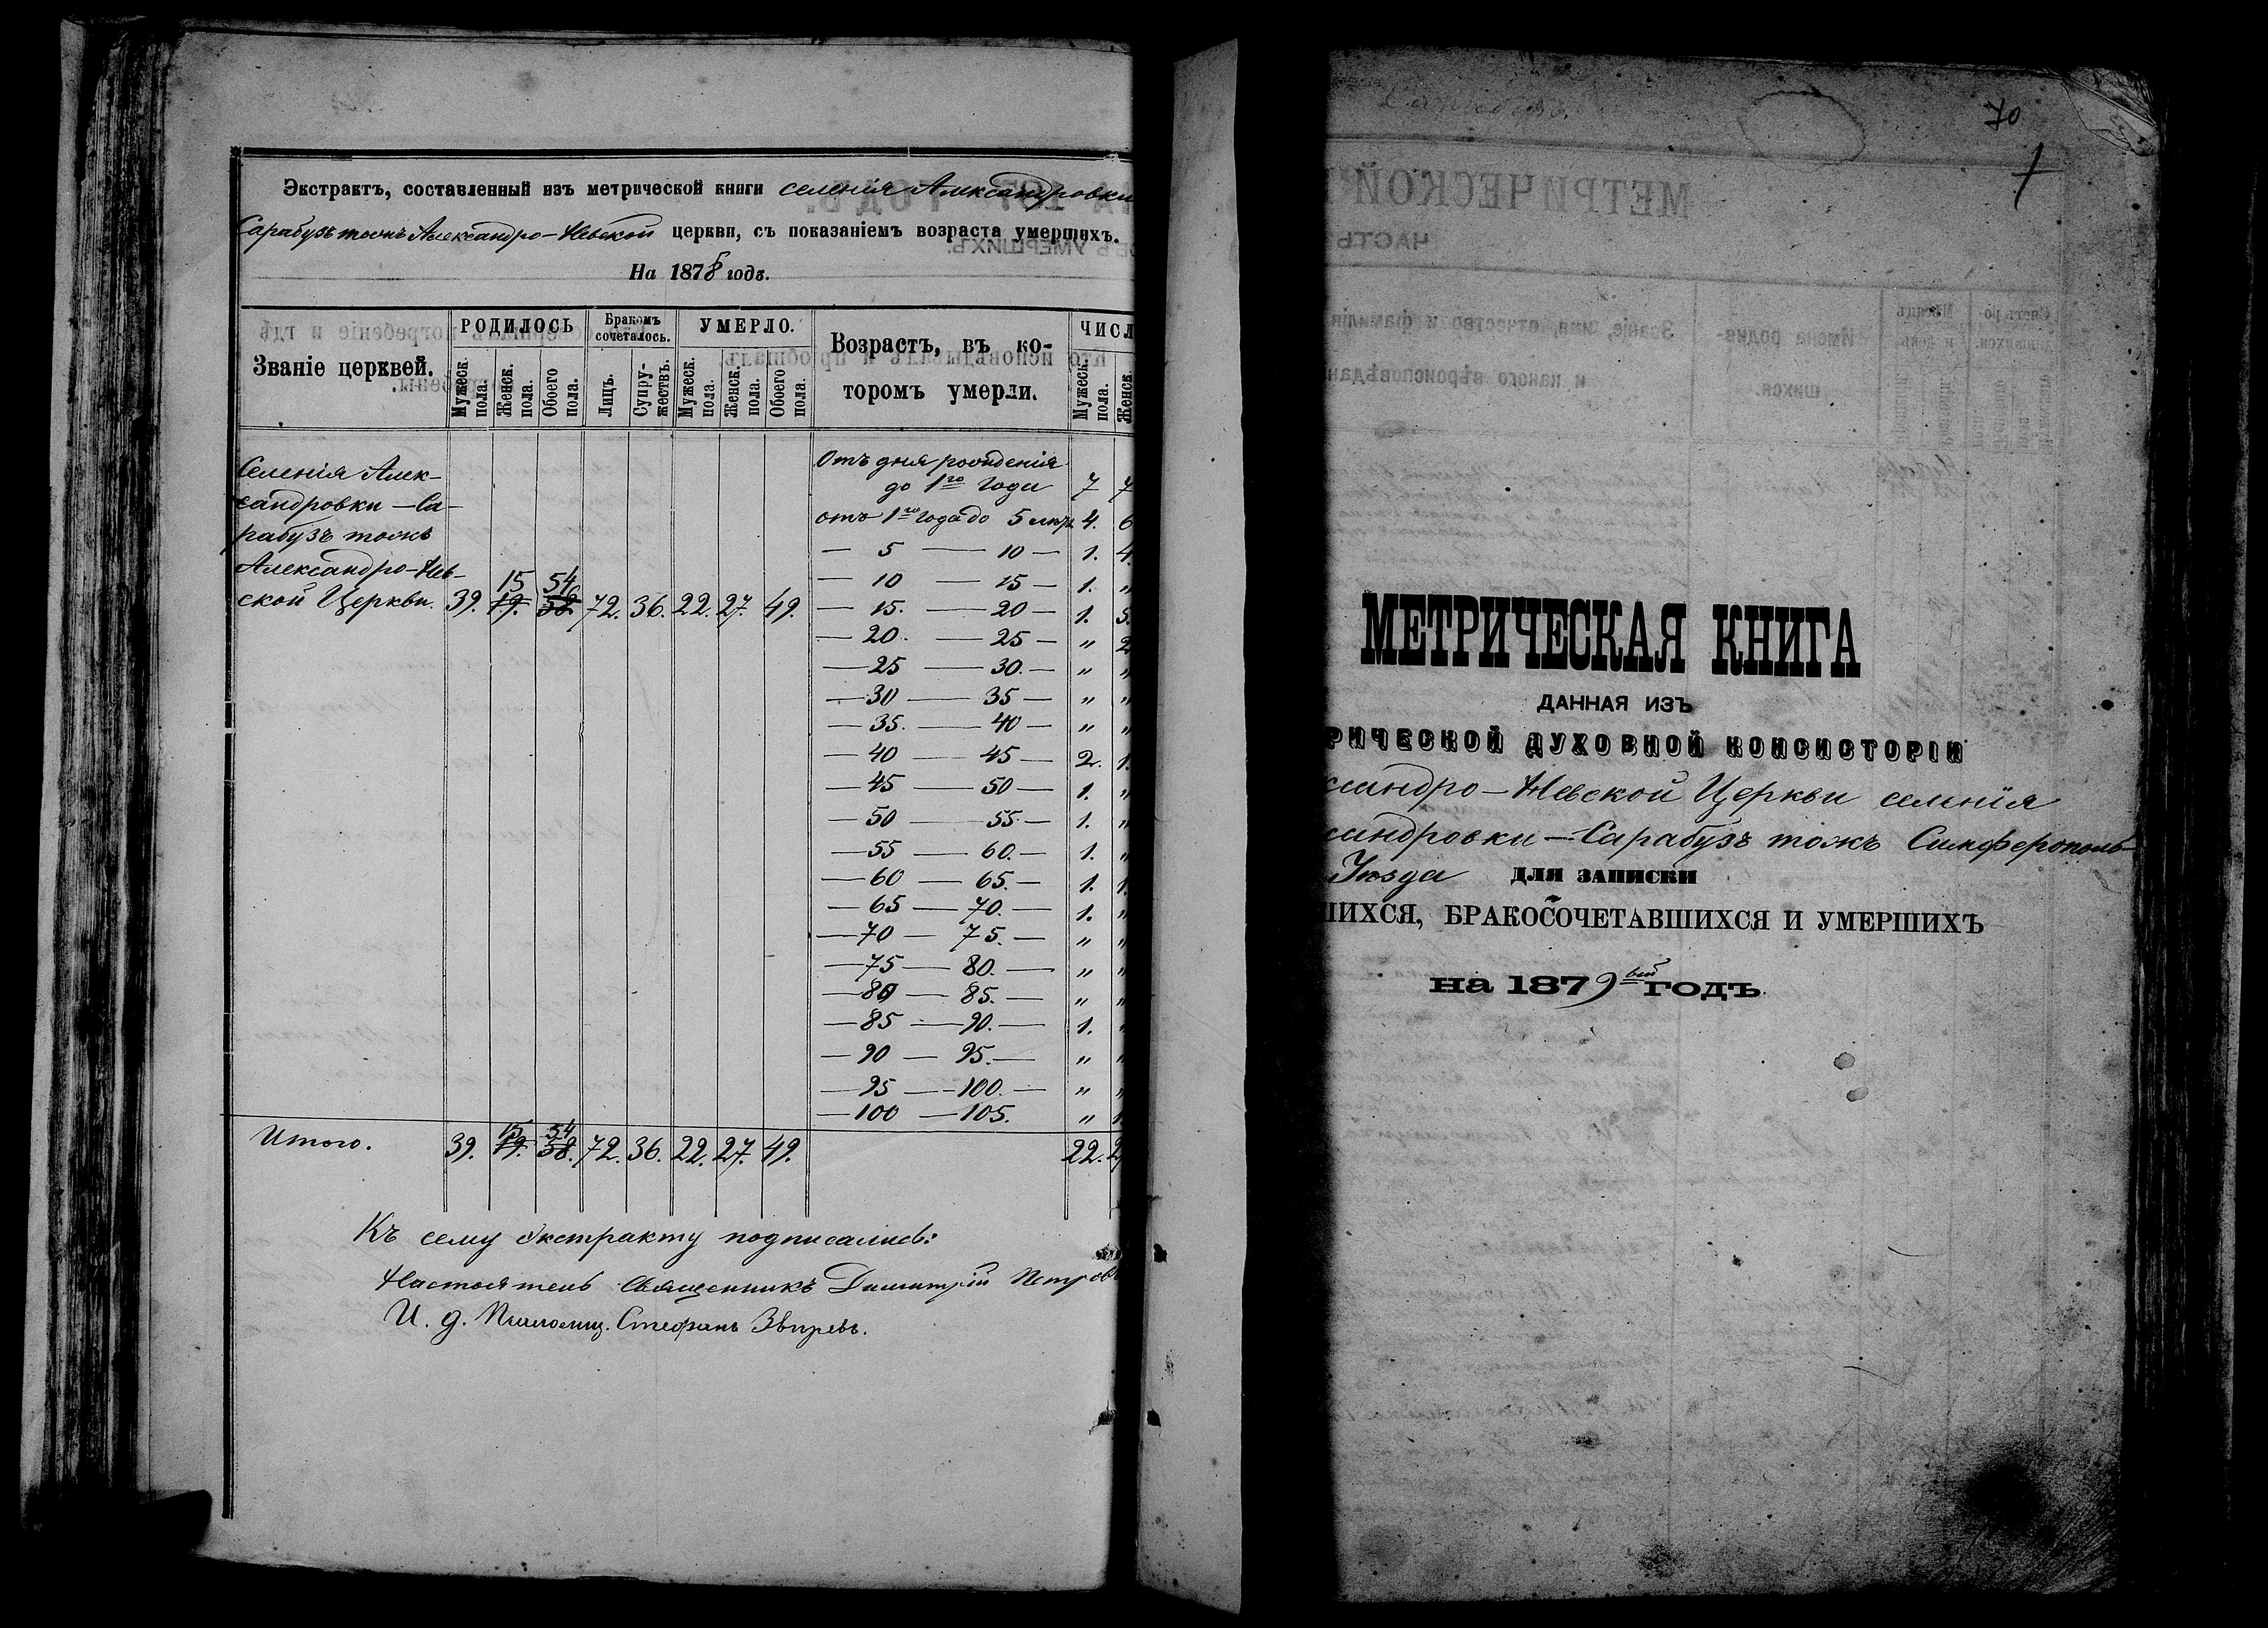 Экстрактъ, составленный изъ метрической книги селенія Александровки
Сарабузъ тожъ Александро-Невской церкви, съ показаніемъ возраста умершихъ.
На 1878 годъ.
Званіе церквей.
РОДИЛОСЬ
Мужеск. пола.
Женск. пола.
Обоего пола.
Бракомъ сочеталось.
Лицъ.
Супружествъ.
УМЕРЛО.
Мужеск. пола.
Женск. пола.
Обоего пола.
Возрастъ, въ ко-
торомъ умерли.
ЧИСЛ
Мужеск. пола.
Женск.
Селенія Алек-
сандровки - Са-
рабузъ тожъ
Александро-Нев-
ской Церкви.
15 54
39. 19. 58. 72. 36. 22. 27. 49.
Отъ дня рожденія
до 1го года 7 7
отъ 1го года до 5 лѣтъ 4. 6
— 5 — 10 — 1. 4.
— 10 — 15 — 1. „
— 15. — 20 — 1. 5.
— 20. — 25 — „ 2
— 25 — 30. — „ „
— 30 — 35 — „ „
— 35. — 40 — „ „
— 40 — 45 — 2. 1.
— 45 — 50 — 1. „
— 50 — 55. — 1. „
— 55 — 60. — 1. „
— 60 — 65. — 1. 1.
— 65 — 70. — 1. „
— 70 — 75. — „ „
— 75 — 80. — „ „
— 80 — 85. — „ „
— 85 — 90. — 1. „
— 90 — 95. — „ „
— 95 — 100. — „ „
— 100 — 105. „ 1
Итого.
15 54
39. 19. 58. 72. 36. 22. 27. 49. 22. 2
Къ сему Экстракту подписались:
Настоятель Священникъ Димитрій Петровъ
И. д. Псаломщ. Стефанъ Звѣревъ.
70
1
МЕТРИЧЕСКАЯ КНИГА
ДАННАЯ ИЗЪ
РИЧЕСКОЙ ДУХОВНОЙ КОНСИСТОРІИ
ксандро-Невской Церкви селенія
сандровки - Сарабузъ тожъ Симферополь-
Уѣзда для записки
ШИХСЯ, БРАКОСОЧЕТАВШИХСЯ И УМЕРШИХЪ
на 1879ый годъ.